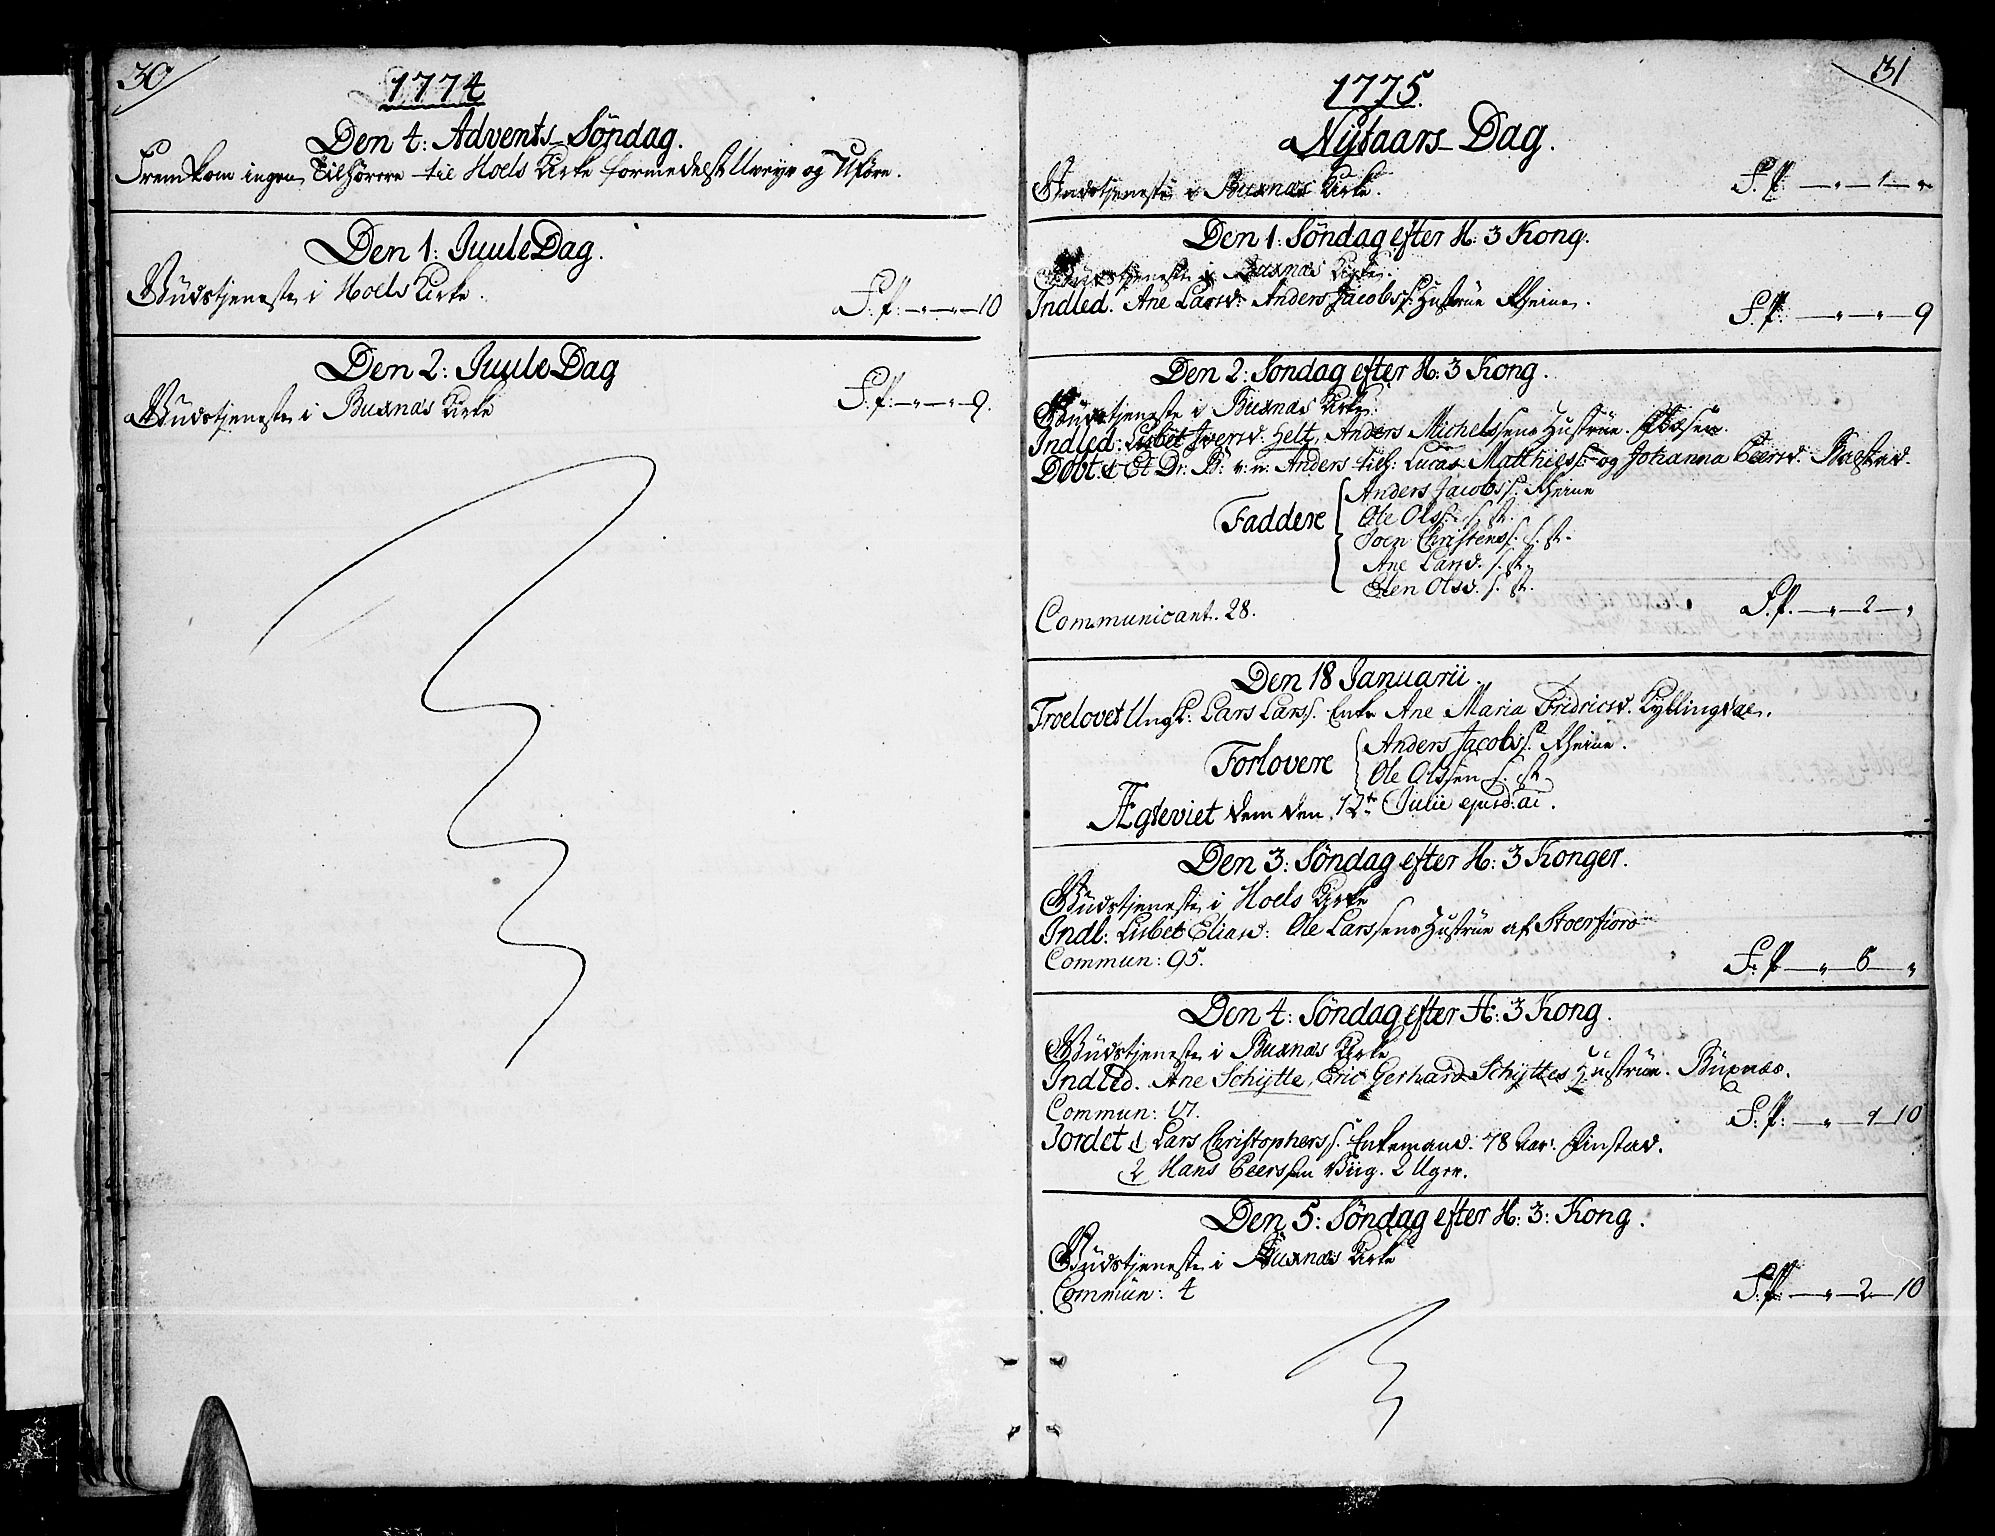 30
1774
Den 4: Advents-Søndag.
Fremkom ingen Tilhørere til Hoels Kirke formedelst Uveyr og Uføre.
Den 1: JuuleDag.
Gudstjeneste i Hoels Kirke.
F:f: — " — " — 10
Den 2: JuuleDag
Gudstjeneste i Buxnæs Kirke
F:f: — " — " — 9.
31
1775.
Nÿtaars-Dag.
Gudstjeneste i Buxnæs Kirke.
F:f: — " — 1 — "
Den 1: Søndag efter H: 3 Kong.
Gudstjeneste i Buxnæs Kirke.
Indled. Ane Larsd: Anders Jacobss: Hustrüe Rheine.
F:f: — " — " — 9
Den 2: Søndag efter H: 3 Kong.
Güdstjeneste i Buxnæs Kirke.
Indled: Lisbet Iversd: Helt, Anders Michelssens Hustrüe.
Døbt 1 Et Dr: B: v: n: Anders tilh: Lucas Matthiess: og Johanna Peersd. Balstad.
Faddere
Anders Jacobss: Rheine
Ole Olss: s. st.
Joen Christenss: s. st.
Ane Larsd. s. st.
Elen Olsd. s. st.
Communicant. 28.
F.f. — " — 2 — "
Den 18 Januarii.
Troelovet Ungk: Lars Larss. Enke Ane Maria Fridricsd. Kyllingdal.
Forlovere
Anders Jacobss: Rheine.
Ole Olssen s. st.
Ægteviet dem den 12te Julii ejusd: ai.
Den 3: Søndag efter H: 3 Konger.
Güdstjeneste i Hoels Kirke
Indl: Lisbet Eliasd: Ole Larssens Hustrüe af Stoerfiord
Commun: 95.
F:f — " — 6 — "
Den 4: Søndag efter H: 3 Kong.
Güdstjeneste i Buxnæs Kirke
Indled. Ane Schÿtte, Eric Gerhard Schÿttes Hustrüe. Büxnæs.
Commun: 17.
F:f: — " — 1 10
Jordet 1 Lars Christopherss. Enkemand. 78 Aar. Finstad.
2 Hans Peerssen Viig. 2 Uger.
Den 5: Søndag efter H: 3: Kong.
Güdstjeneste i Buxnæs Kirke
Commün: 4
F:f: — " — 2 — 10